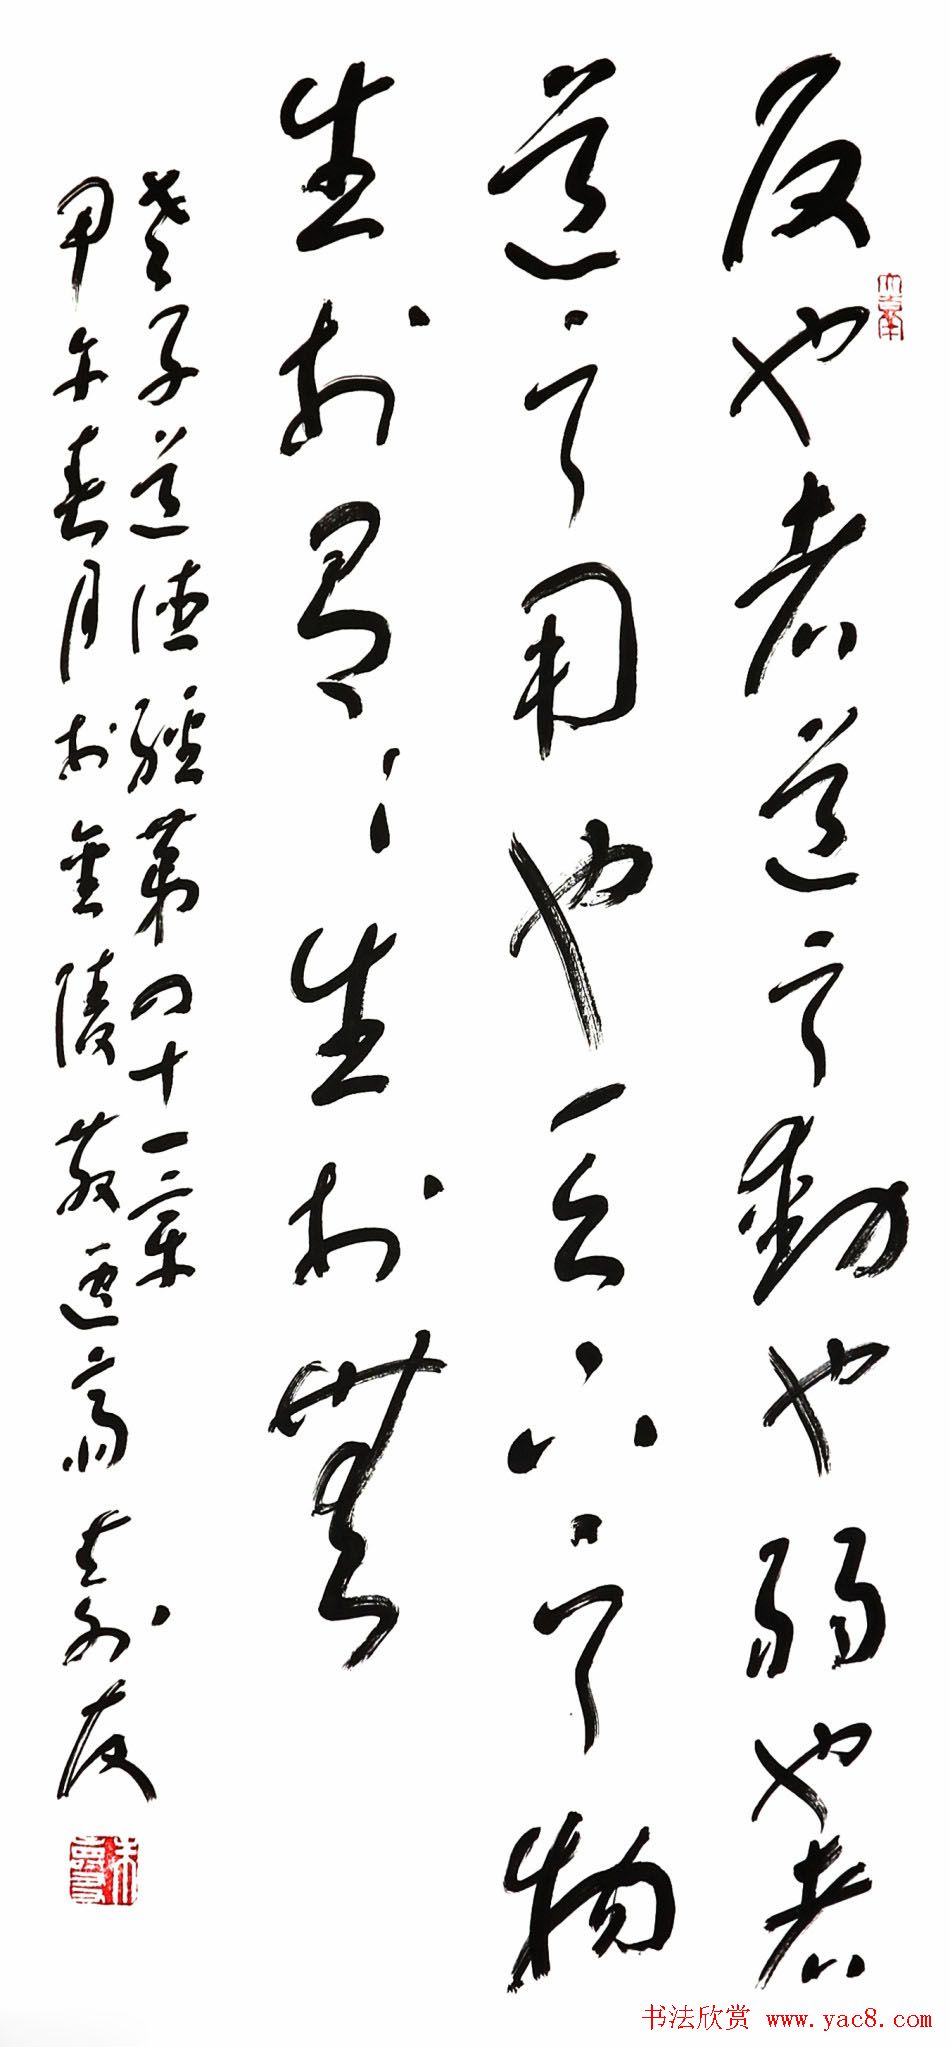 反也者道之動也弱也者
道之用也天下之物
生於有〻生於無
老子道德經第四十一章
甲午春月於金陵齋壽友
朱壽友
书法欣赏 www.yac8.com